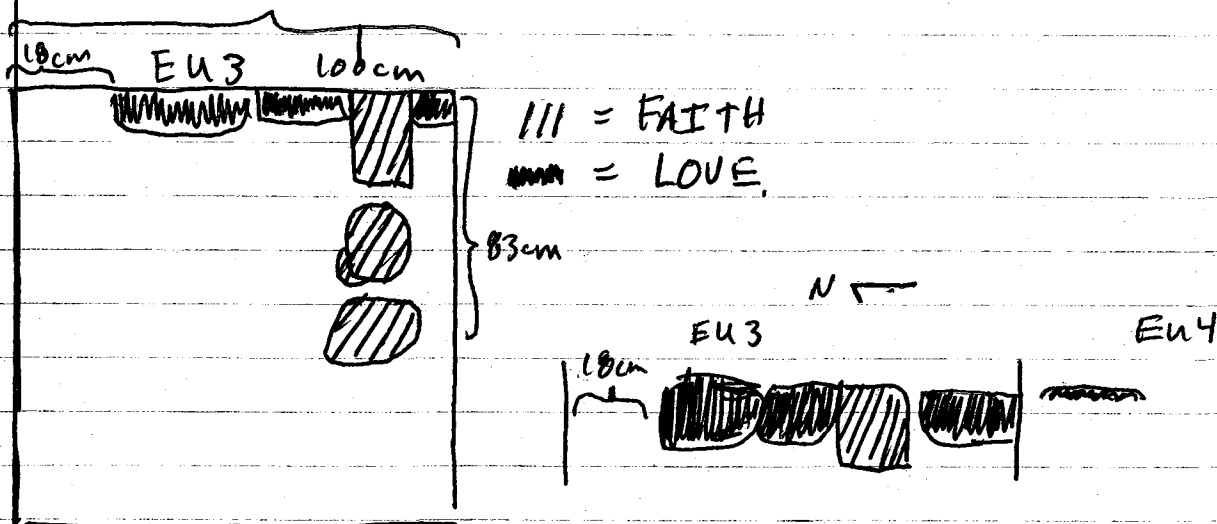 18cm EU3 100cm
/// = FAITH
= LOVE.
83cm
N
EU3 EU4
18cm